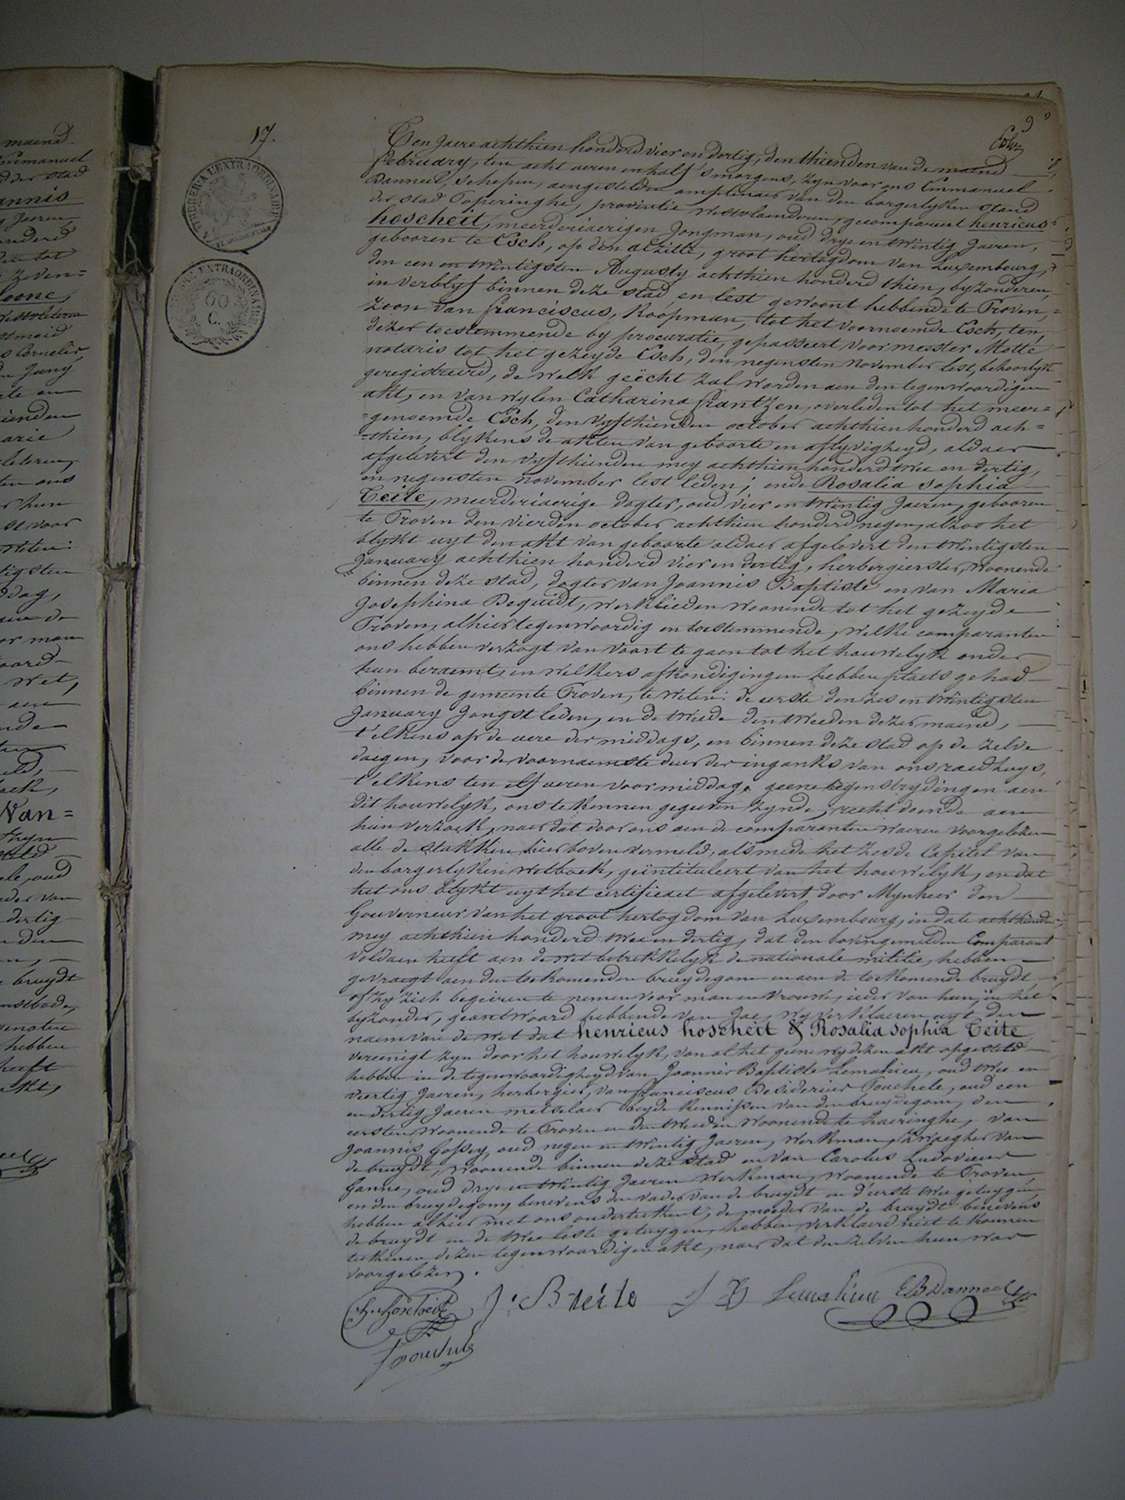 17.
Ten jaere achthien honderd vier en dertig, den thienden van de maend
february, ten acht ueren en half 's morgens, zyn voor ons Emmanuel
Danneel, schepen, aengestelden amptenaer van den borgerlyken stand
der stad Poperinghe, provintie Westvlaenderen, gecompareert henricus
hoscheit, meerderjaerigen jongman, oud drye en twintig jaeren,
gebooren te Esch, op den alzette, groot hertogdom van Luxembourg,
den een en twintigsten Augusty achthien honderd thien, byzonderen,
in verblyf binnen deze stad en lest gewoont hebbende te Proven,
zoon van franciscus, koopman, tot het voornoemde Esch, ten
dezer toestemmende by procuratie, gepasseert voor meester Motté
notaris tot het gezeyde Esch, den negensten november lest, behoorlyk
geregistreerd, de welk geëcht zal worden aen den tegenwoordigen
akt, en van wylen Catharina frantzen, overleden tot het meer=
=genoemde Esch, den vyfthienden october achthien honderd ach=
=thien, blykens de akten van geboorte en aflyvigheyd, aldaer
afgelevert den vyfthienden mey achthien honderd twee en dertig,
en negensten november lest leden; ende Rosalia sophia
Teite, meerderjaerige dogter, oud vier en twintig jaeren, gebooren
te Proven den vierden october achthien honderd negen, alzoo het
blykt uyt den akt van geboorte aldaer afgelevert den twintigsten
January achthien honderd vier en dertig, herbergierster, woonende
binnen deze stad, dogter van Joannis Baptiste en van Maria
Josephina Dequidt, werklieden woonende tot het gezeyde
Proven, alhier tegenwoordig en toestemmende, welke comparanten
ons hebben verzogt van voort te gaen tot het houwelyk onder
hun beraemt, en welkers afkondigingen hebben plaets gehad
binnen de gemeente Proven, te weten: de eerste den zes en twintigsten
January jongst leden, en de tweede den tweeden dezer maend,
t'elkens op de uere der middags, en binnen deze stad op de zelve
daegen, voor de voornaemste deur der ingank van ons raedhuys,
t'elkens ten elf ueren voor middag, geene tegenstrydingen aen
dit houwelyk, ons te kennen gegeven zynde, recht doende aen
hun verzoek, naer dat door ons aen de comparanten waeren voorgelezen
alle de stukken hier boven vermeld, alsmede het zesde Capitel van
den borgerlyken wetboek, geïntituleert van het houwelyk, en dat
het ons blykt uyt het certificaet afgelevert door Mynheer den
Gouverneur van het groot hertogdom van Luxembourg, in date achthiende
mey achthien honderd twee en dertig, dat den bovengemelden Comparant
voldaen heeft aen de wet betrekkelyk de nationale militie, hebben
gevraegt aen den toekomenden bruydegom en aen de toekomende bruydt,
of zy zich begeiren te nemen voor man en vrouw, ieder van hun, in het
byzonder, geantwoord hebbende van Jae, wy verklaeren uyt den
naem van de wet dat henricus hoscheit & Rosalia sophia Teite
vereenigt zyn door het houwelyk, van al het geene wy dezen akt opgesteld
hebben in de tegenwoordigheyd van Joannes Baptiste Lemahieu, oud twee en
viertig jaeren, herbergier, van franciscus Desiderius
en dertig jaeren metselaer beyde kennissen van den bruydegom, den
eersten woonende te Proven en den tweeden woonende te haeringhe, van
Joannis Gossey, oud negen en twintig jaeren, werkman, zwaegher van
de bruydt, woonende binnen deze stad en van Carolus Ludovicus
oud drye en twintig jaeren werkman, woonende te Proven,
en den bruydegom benevens den vader van de bruydt en d'eerste twee getuygen
hebben alhier met ons onderteekent; de moeder van de bruydt benevens
de bruydt en de twee leste getuygen, hebben verklaerd niet te konnen
teekenen dezen tegenwoordigen akt, naer dat den zelven hun was
voorgelezen.
J. B teite
J B Lemahieu
E B Danneel